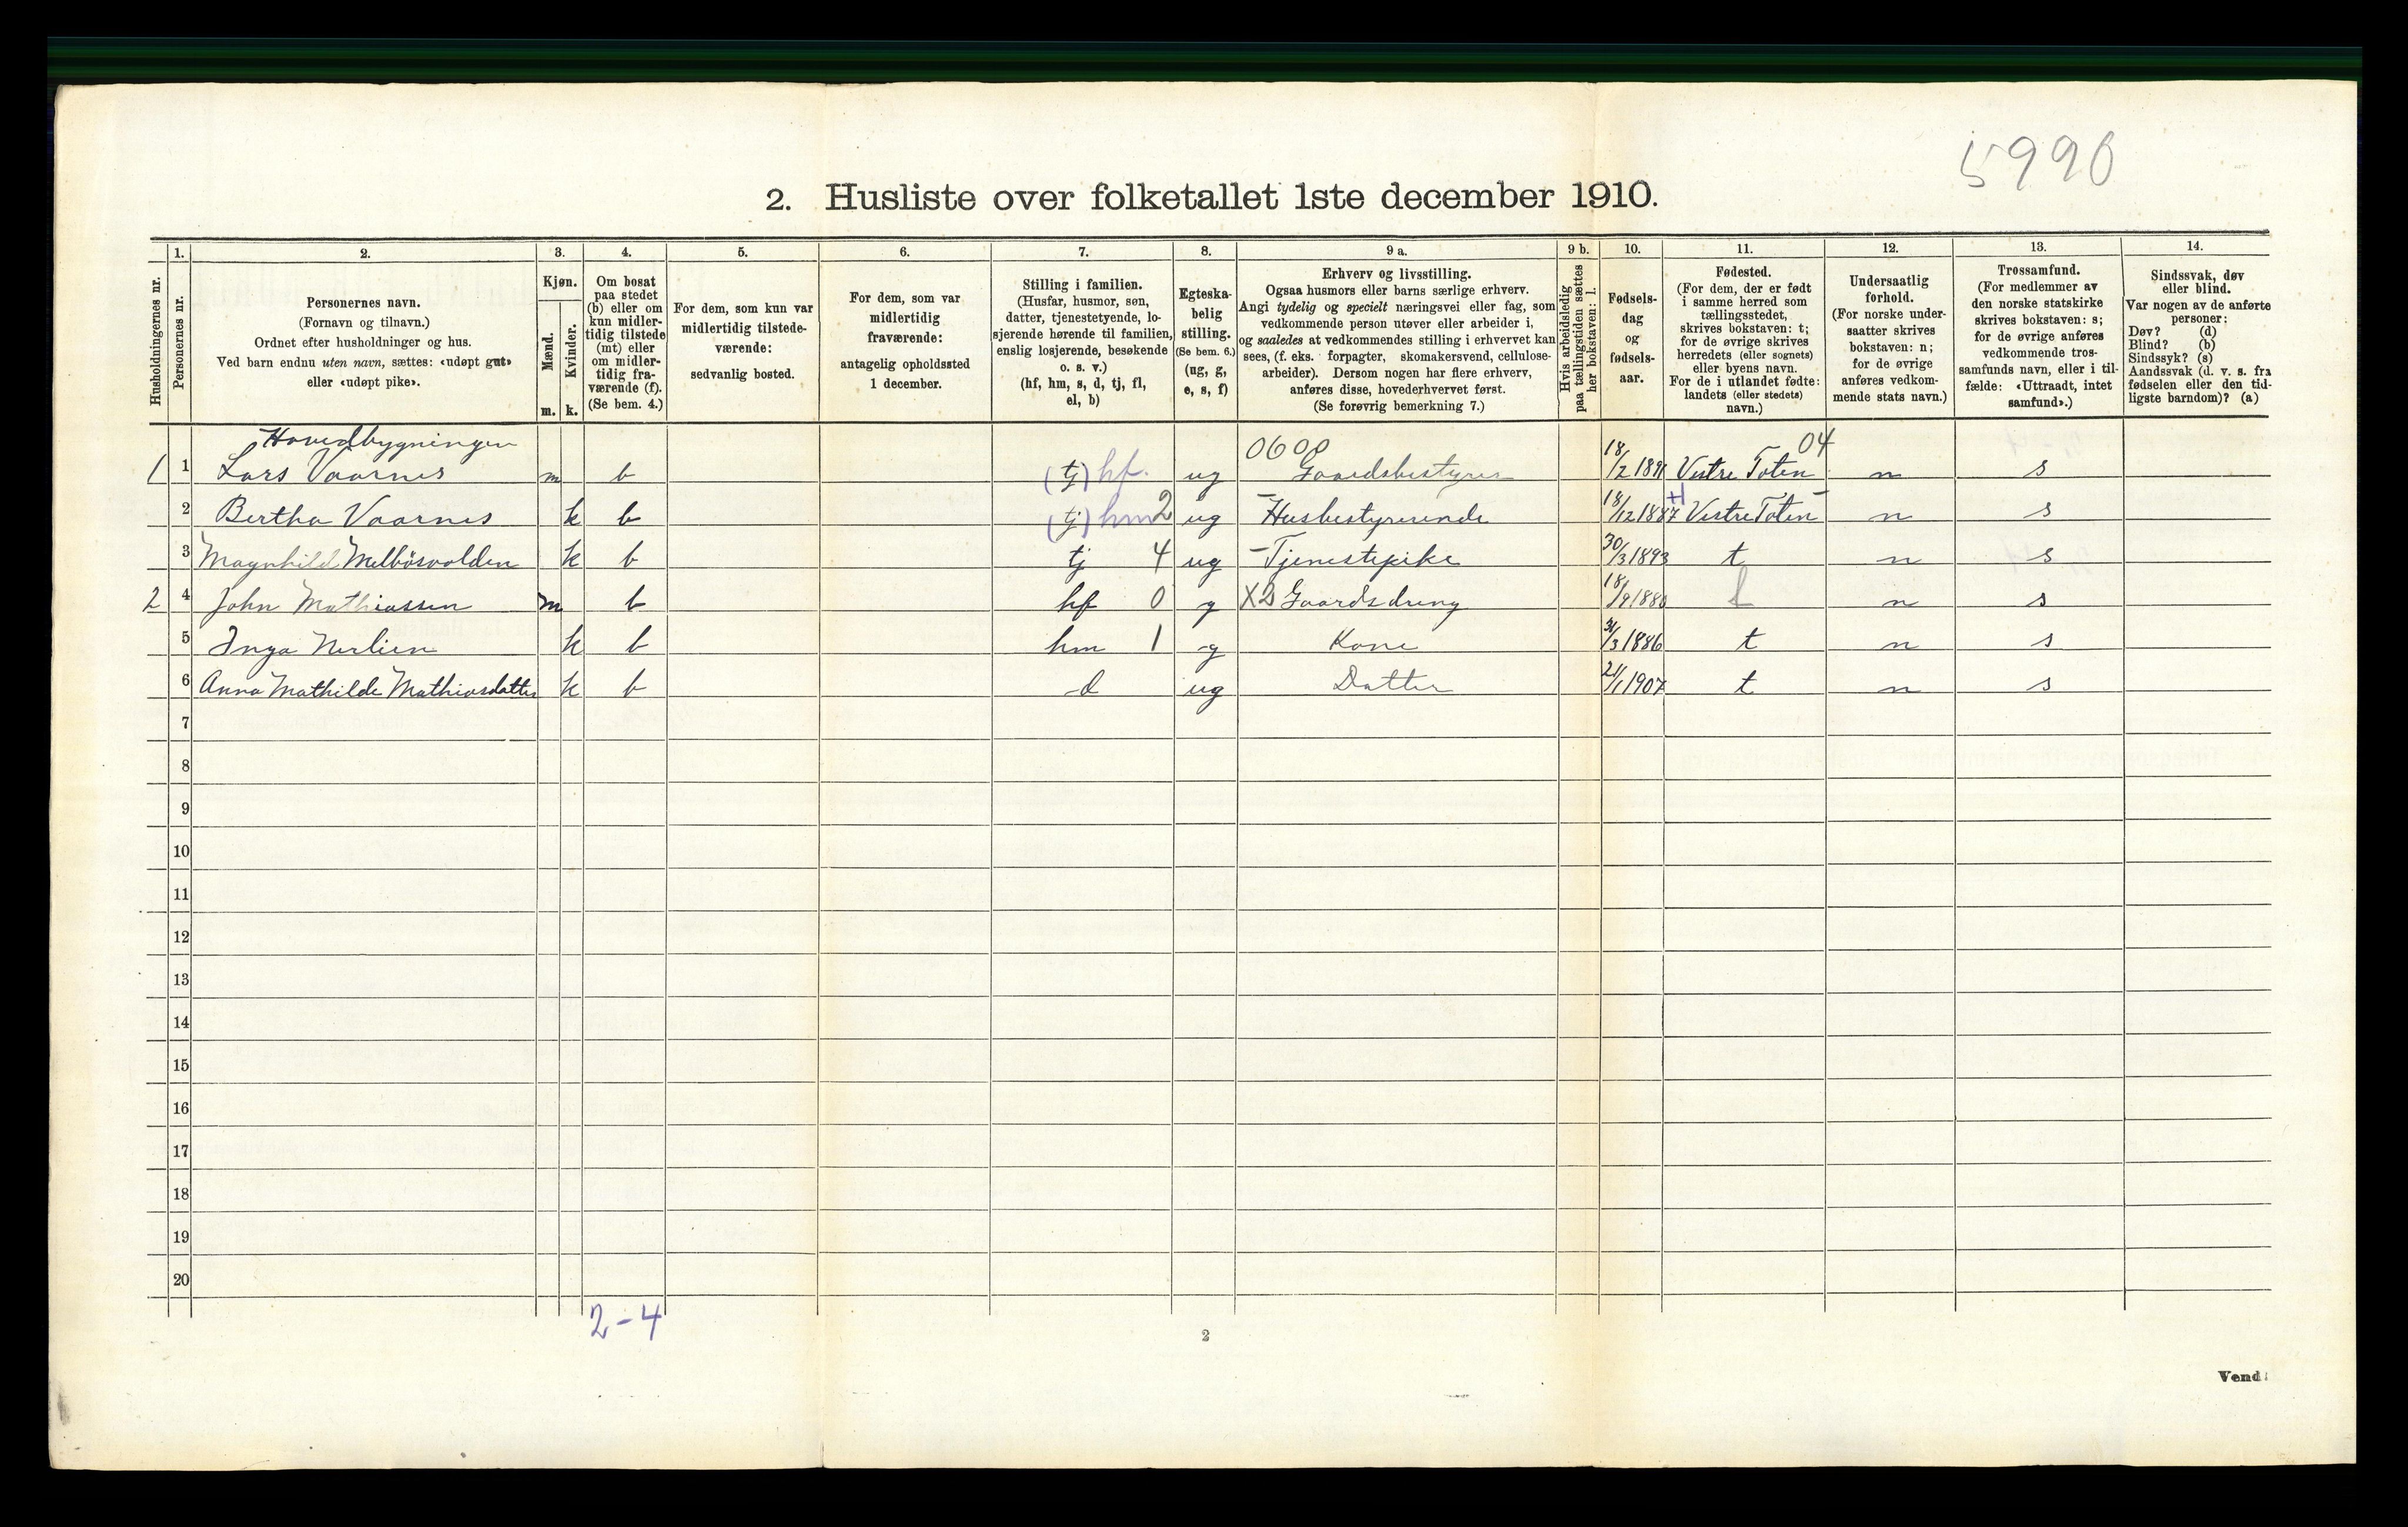 5990
2. Husliste over folketallet 1ste december 1910.
Husholdningernes nr.
1.
Personernes nr.
2.
Personernes navn.
(Fornavn og tilnavn.)
Ordnet efter husholdninger og hus.
Ved barn endnu uten navn, sættes: «udøpt gut»
eller «udøpt pike».
3.
Kjøn.
Mænd.
Kvinder.
m.
k.
4.
Om bosat
paa stedet
(b) eller om
kun midler-
tidig tilstede
(mt) eller
om midler-
tidig fra-
værende (f).
(Se bem. 4.)
5.
For dem, som kun var
midlertidig tilstede-
værende:
sedvanlig bosted.
6.
For dem, som var
midlertidig
fraværende:
antagelig opholdssted
1 december.
7.
Stilling i familien.
(Husfar, husmor, søn,
datter, tjenestetyende, lo-
sjerende hørende til familien,
enslig losjerende, besøkende
o. s. v.)
(hf, hm, s, d, tj, fl,
el, b)
8.
Egteska-
belig
stilling.
(Se bem. 6.)
(ug, g,
e, s, f)
9 a.
Erhverv og livsstilling.
Ogsaa husmors eller barns særlige erhverv.
Angi tydelig og specielt næringsvei eller fag, som
vedkommende person utøver eller arbeider i,
og saaledes at vedkommendes stilling i erhvervet kan
sees, (f. eks. forpagter, skomakersvend, cellulose-
arbeider). Dersom nogen har flere erhverv,
anføres disse, hovederhvervet først.
(Se forøvrig bemerkning 7.)
9 b.
Hvis arbeidsledig
paa tællingstiden sættes
her bokstaven: l.
10.
Fødsels-
dag
og
fødsels-
aar.
11.
Fødested.
(For dem, der er født
i samme herred som
tællingsstedet,
skrives bokstaven: t;
for de øvrige skrives
herredets (eller sognets)
eller byens navn.
For de i utlandet fødte:
landets (eller stedets)
navn.)
12.
Undersaatlig
forhold.
(For norske under-
saatter skrives
bokstaven: n;
for de øvrige
anføres vedkom-
mende stats navn.)
13.
Trossamfund.
(For medlemmer av
den norske statskirke
skrives bokstaven: s;
for de øvrige anføres
vedkommende tros-
samfunds navn, eller i til-
fælde: «Uttraadt, intet
samfund».)
14.
Sindssvak, døv
eller blind.
Var nogen av de anførte
personer:
Døv? (d)
Blind? (b)
Sindssyk? (s)
Aandssvak (d. v. s. fra
fødselen eller den tid-
ligste barndom)? (a)
Hovedbygningen 0600 04
1 1 Lars Vaarnes m b (tj) hf. ug Gaardsbestyrer 18/2 1891 Vestre Toten n s
2 Bertha Vaarnes k b (tj) hm 2 ug - Husbestyrerinde 18/12 1887 Vestre Toten n s
3 Magnhild Melbösvolden k b tj 4 ug - Tjenestepike 30/3 1893 t n s
2 4 John Mathiassen m b hf 0 g Gaardsdreng 18/9 188 t n s
5 Inga Nerlien k b hm 1 g Kone 31/3 1886 t n s
6 Anna Mathilde Mathiasdatter k b d ug Datter 21/1 1907 t n s
7
8
9
10
11
12
13
14
15
16
17
18
19
20
2-4
2
Vend!